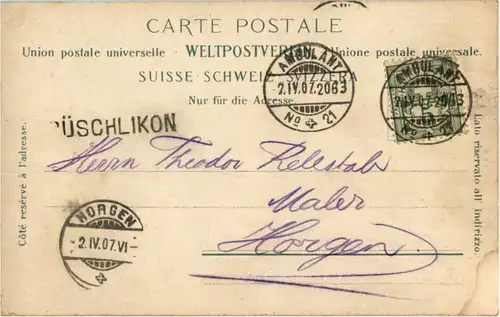 CARTE POSTALE
Union postale universelle WELTPOSTVEREIN Unione postale universale.
SUISSE SCHWEIZ SVIZZERA
Nur für die Adresse.
AMBULANT
2.IV.07.2063
No 21
AMBULANT
2.IV.07-2063
No 21
ÜSCHLIKON
Herrn Theodor
Maler
Horgen.
HORGEN
2.IV.07.VI
Côté réservé à l'adresse.
Lato riservato all' indirizzo.